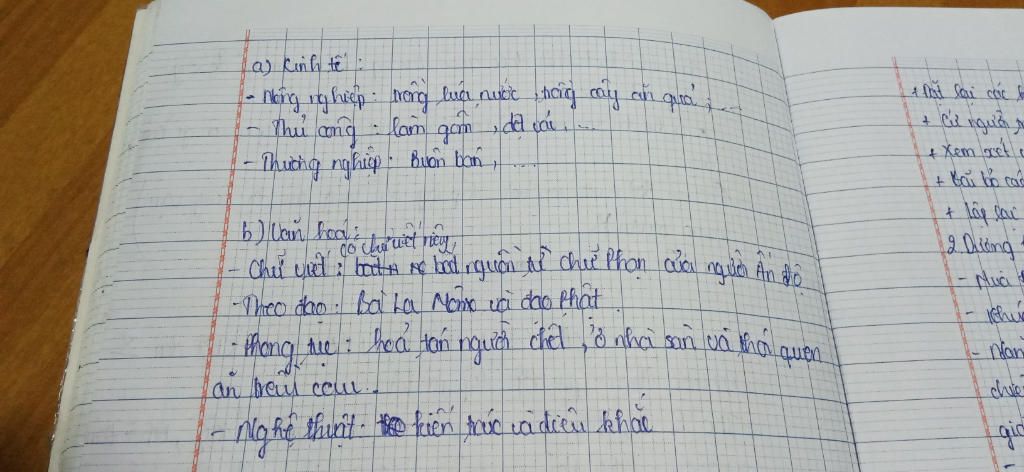 a) Kinh tế :
- Nông nghiệp : trồng lúa nước, trồng cây ăn quả, ...
- Thủ công : làm gốm, dệt vải, ...
- Thương nghiệp : Buôn bán, ...
b) Văn hoá :
có chữ viết riêng,
- Chữ viết : bắt nguồn từ chữ Phạn của người Ấn độ
- Theo đạo : Bà La Môn và đạo Phật
- Phong tục : hoả táng người chết, ở nhà sàn và thói quen
ăn trầu cau.
- Nghệ thuật : kiến trúc và điêu khắc
+ Đặt lại các
+ Cử người
+ Xem xét
+ Bãi bỏ các
+ lập lại
2. Dương
- Nhà
- Khúc
- Nam